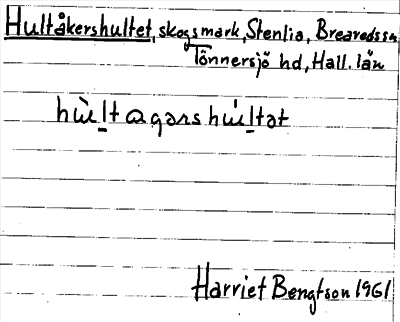 Hultåkershultet, skogsmark, Stenlia, Breareds sn
Tönnersjö hd, Hall. län
hùl̲tagərshúl̲tət
Harriet Bengtson 1961